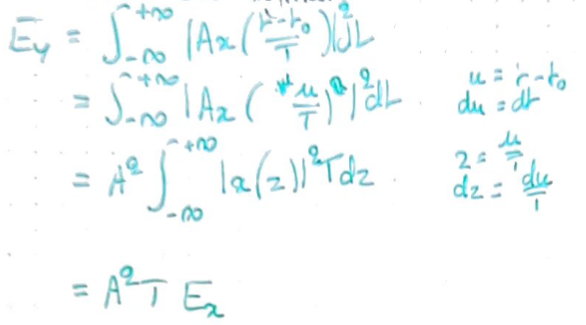 E_y = ∫_{-∞}^{+∞} |Ax(\frac{t-t_0}{T})|^2 dt
= ∫_{-∞}^{+∞} |Ax(\frac{u}{T})|^2 dt
u = t-t_0
du = dt
= A^2 ∫_{-∞}^{+∞} |x(z)|^2 T dz
z = \frac{u}{T}
dz = \frac{du}{T}
= A^2 T E_x